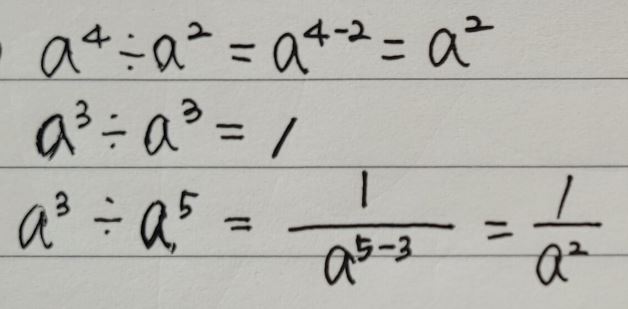 a⁴ ÷ a² = a⁴⁻² = a²
a³ ÷ a³ = 1
a³ ÷ a⁵ = 1/a⁵⁻³ = 1/a²